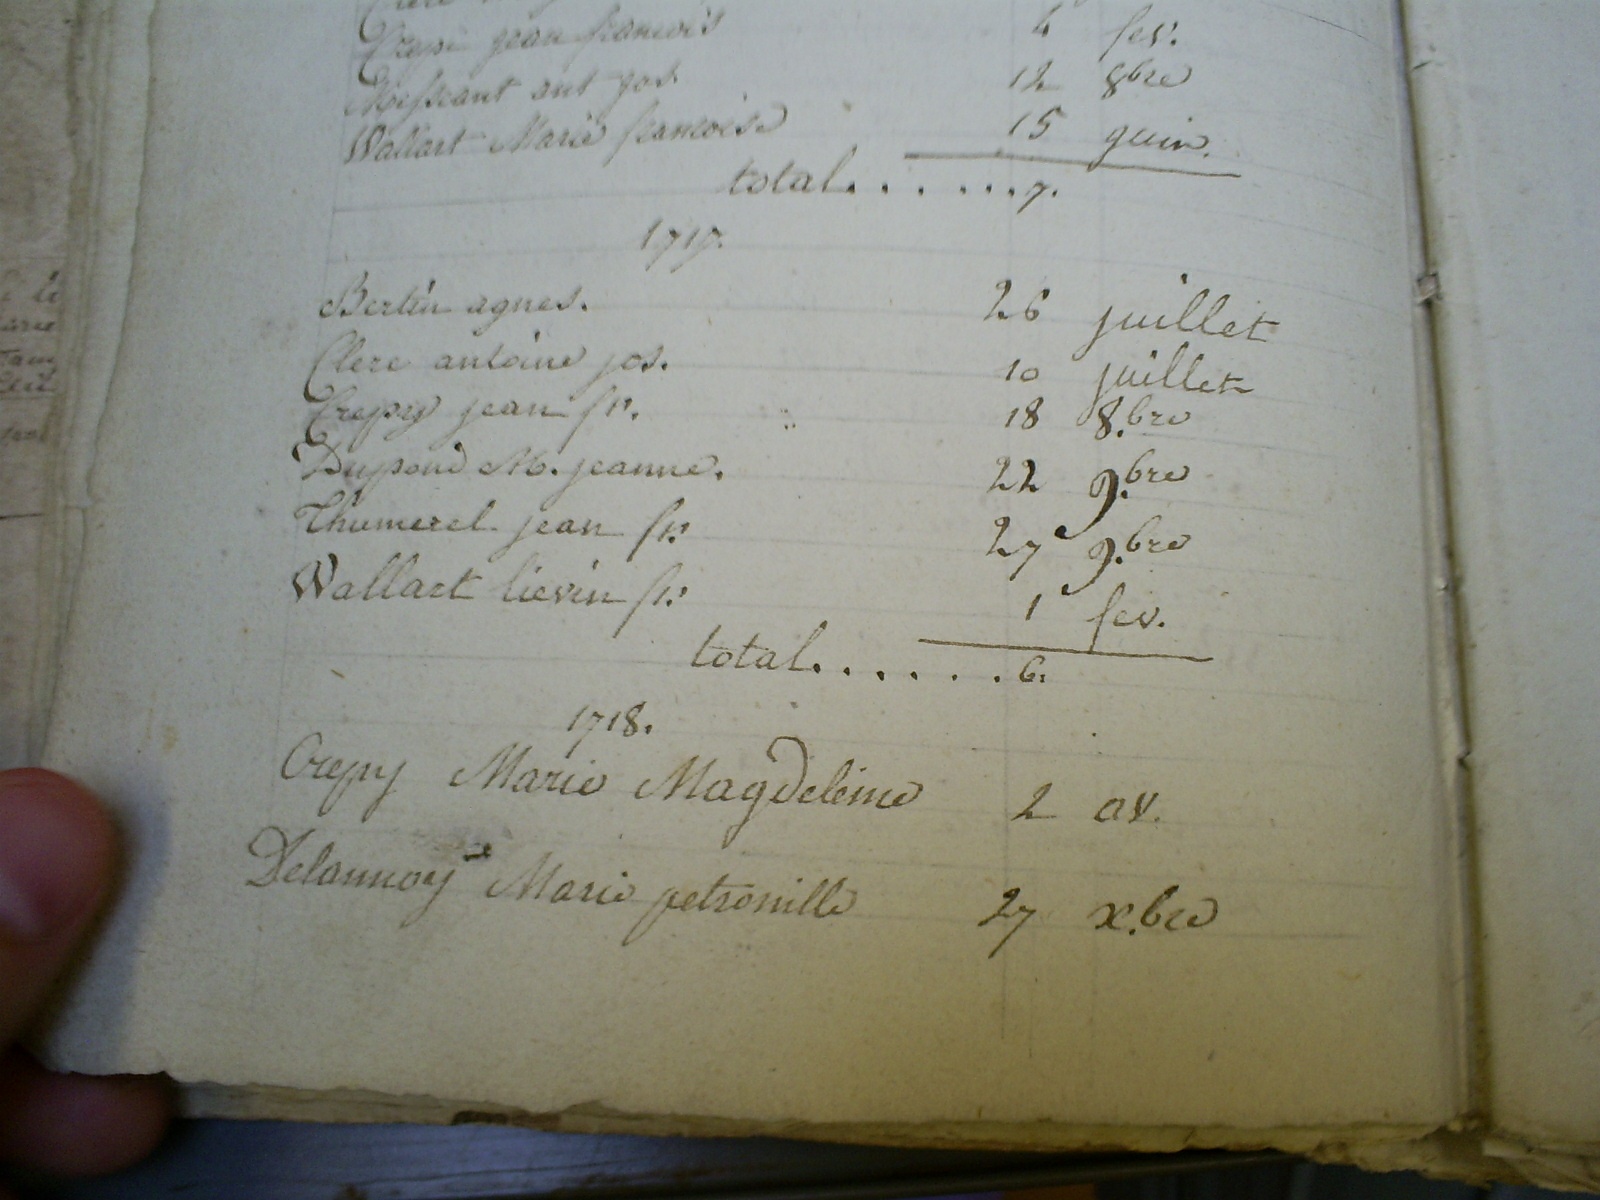 Crepi jean francois 4 fev.
Messeant ant jos. 12 8bre
Wallart Marie francoise 15 guin.
total.......7.
1717.
Bertin agnes. 26 juillet
Clerc antoine jos. 10 juillet
Crepy jean fr. 18 8.bre
Dupond M. jeanne. 22 9.bre
Thumerel jean fr. 27 9.bre
Wallart lievin fr. 1 fev.
total.......6.
1718.
Crepy Marie Magdeleine 2 av.
Delannoy Marie petronille 27 x.bre